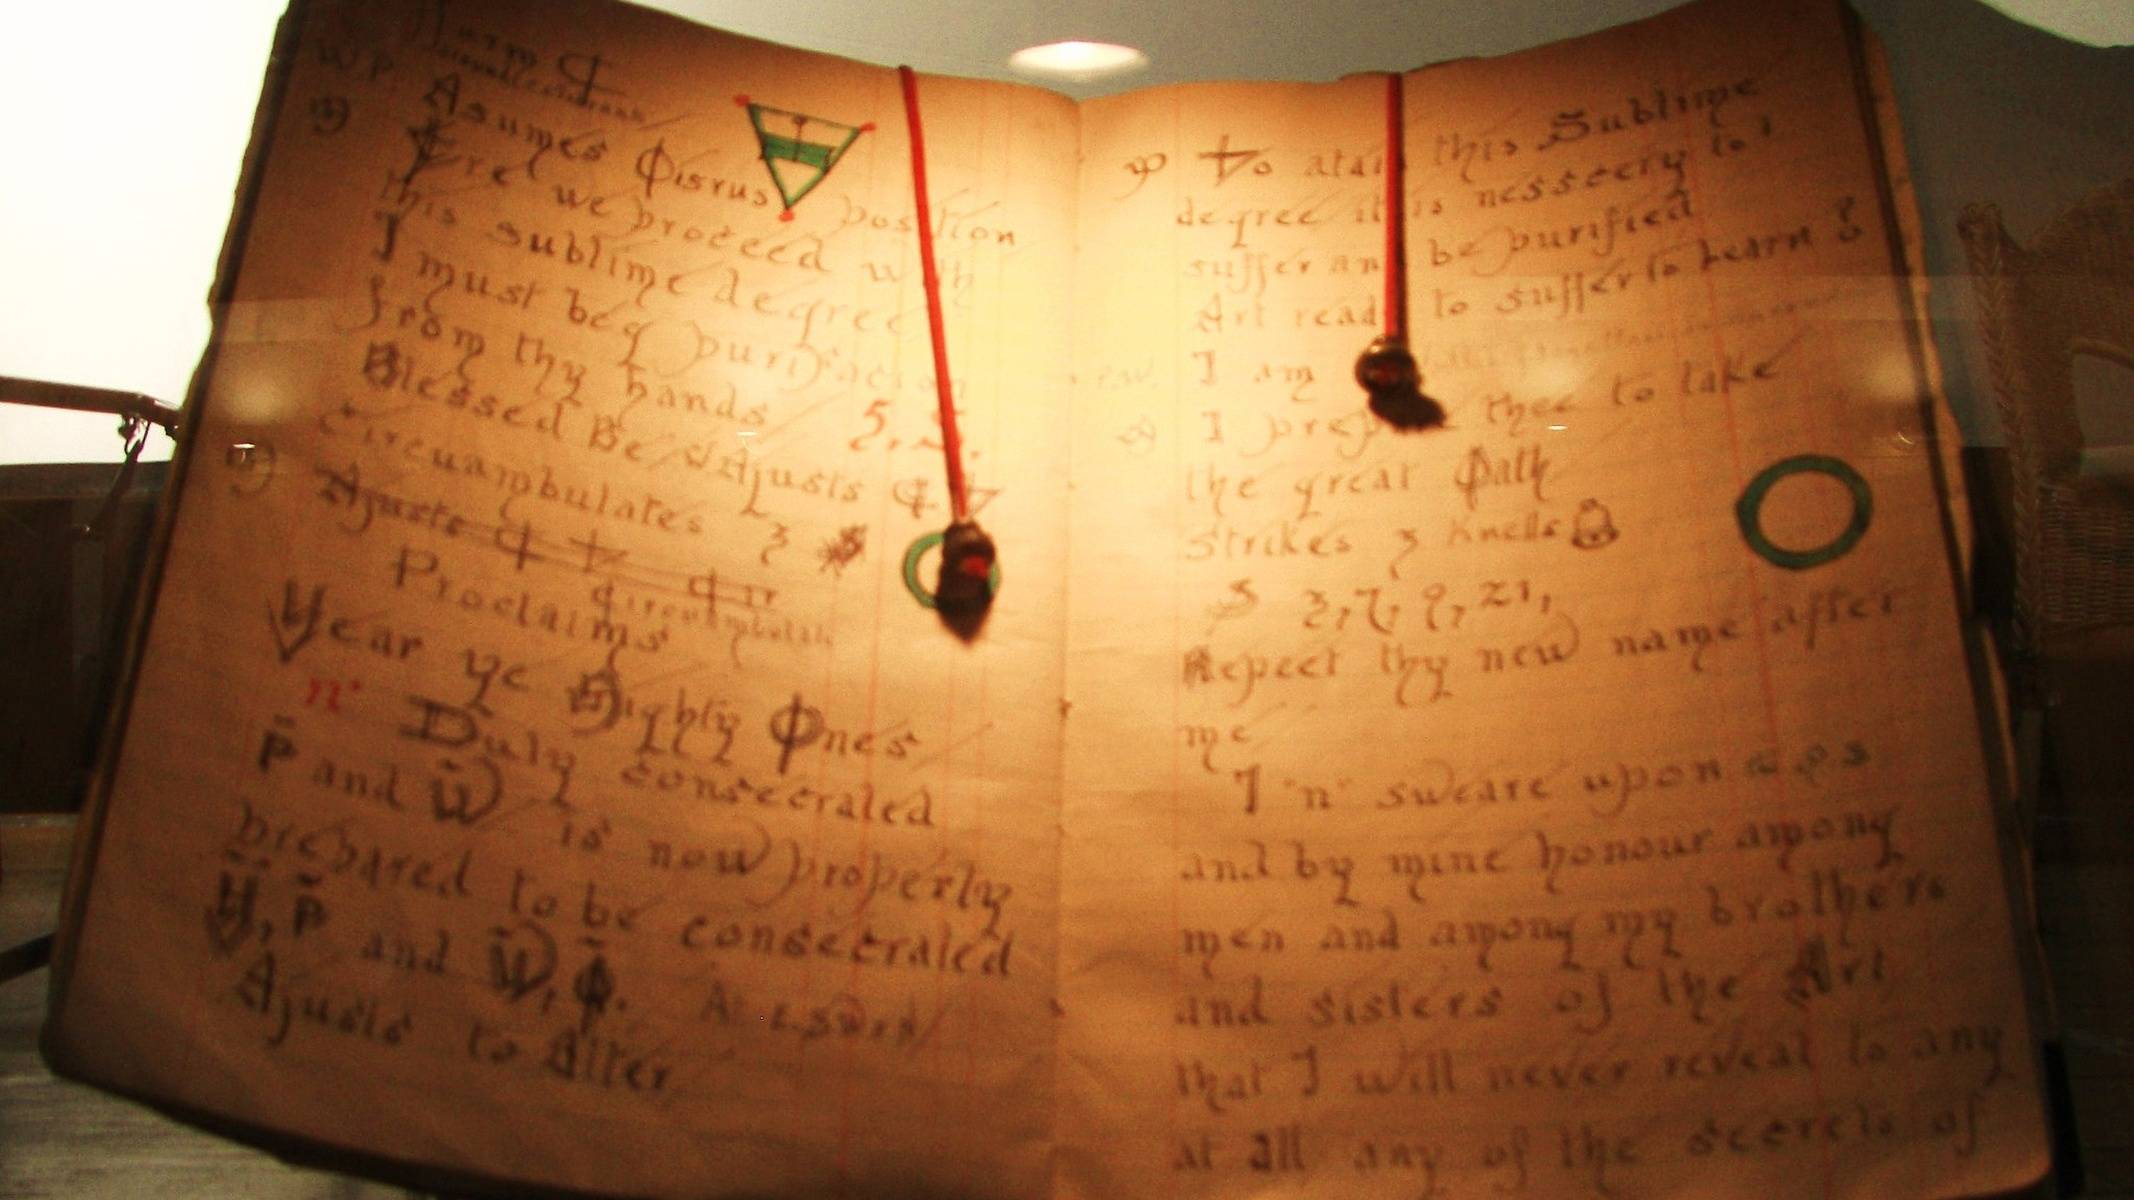 Asumes Osirus position
Ere we proceed with
this sublime degree
I must beg purifacion
from thy hands
Blessed Be Ajusts
Circuambulates 3
Ajusts
Proclaims
Hear ye Mighty Ones
n. Duly consecrated
P and W is now properly
prepared to be consecrated
H, P and W,
Ajusts to Alter
To atai this Sublime
degree it is nessecery to
suffer an be purified
Art read to suffer to learn ?
I am
I prep thee to take
the great Path
Strikes 3 Knells
3, 7, 9, 21,
Repeet thy new name after
me
I "n" sweare upon
and by mine honour among
men and among my brothers
and sisters of the Art
that I will never reveal to any
at all any of the secrets of